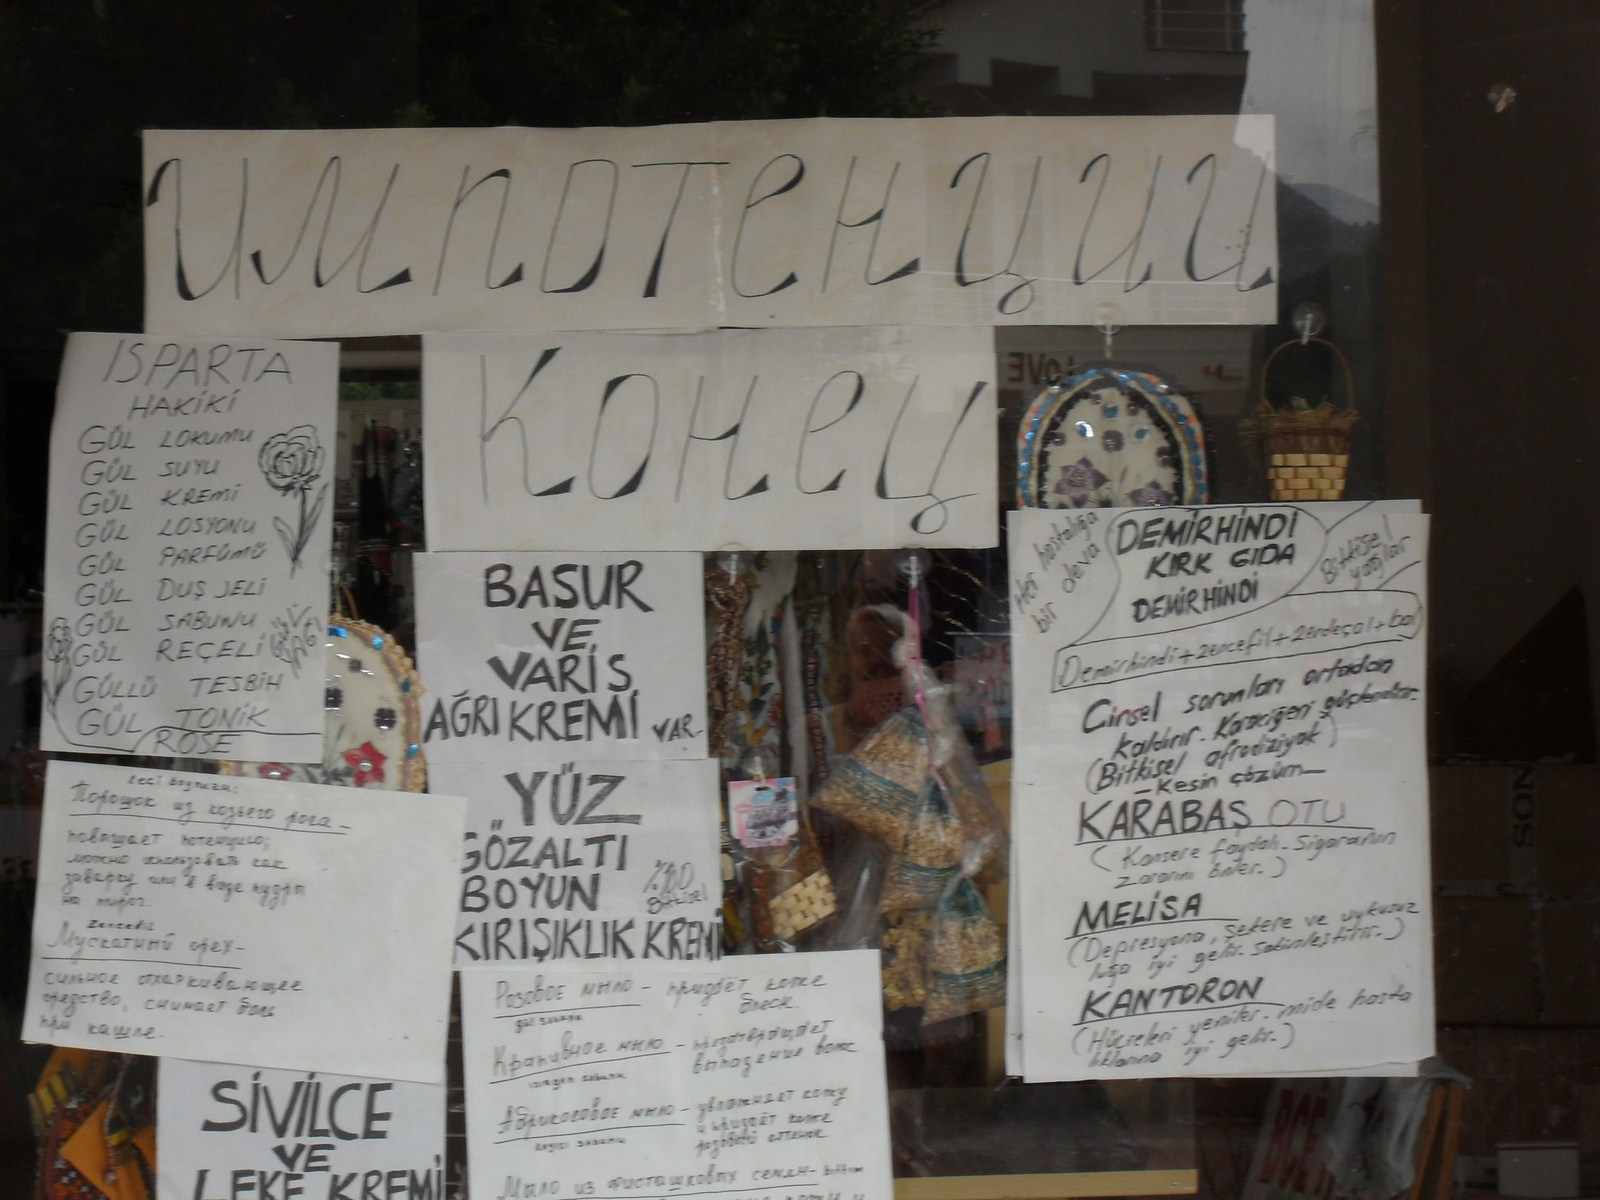 импотенции
Конец
ISPARTA
HAKİKİ
GÜL LOKUMU
GÜL SUYU
GÜL KREMİ
GÜL LOSYONU
GÜL PARFÜMÜ
GÜL DUŞ JELİ
GÜL SABUNU
GÜL REÇELİ
GÜL YAĞI
GÜLLÜ TESBİH
GÜL TONİK
ROSE
BASUR
VE
VARİS
AĞRI KREMİ VAR.
YÜZ
GÖZALTI
BOYUN
%100 Bitkisel
KIRIŞIKLIK KREMİ
Her hastalığa
bir deva
DEMİRHİNDİ
KIRK GIDA
DEMİRHİNDİ
Bitkisel
yağlar
Demirhindi+zencefil+zerdeçal+bal
Cinsel sorunları ortadan
kaldırır. Karaciğeri güçlendirir.
(Bitkisel afrodiziyak)
—Kesin çözüm—
KARABAŞ OTU
(Kansere faydalı. Sigaranın
zararını önler.)
MELİSA
(Depresyona, şekere ve uykusuz
luğa iyi gelir. Sakinleştirir.)
KANTORON
(Hücreleri yeniler. mide hasta
lıklarına iyi gelir.)
Порошок из козьего рога –
повышает потенцию,
можно использовать как
заварку или в виде пудры
на пирог.
Мускатный орех-
сильное отхаркивающее
средство, снимает боль
при кашле.
Розовое мыло – придаёт коже
блеск.
gül sabunu
Крапивное мыло – предотвращает
выпадение волос
ısırgan sabunu
Абрикосовое мыло – увлажняет кожу
и придаёт коже
розовый оттенок
kayısı sabunu
Мыло из фисташковых семян- bıttım
SİVİLCE
VE
LEKE KREMİ
LOVE
SON